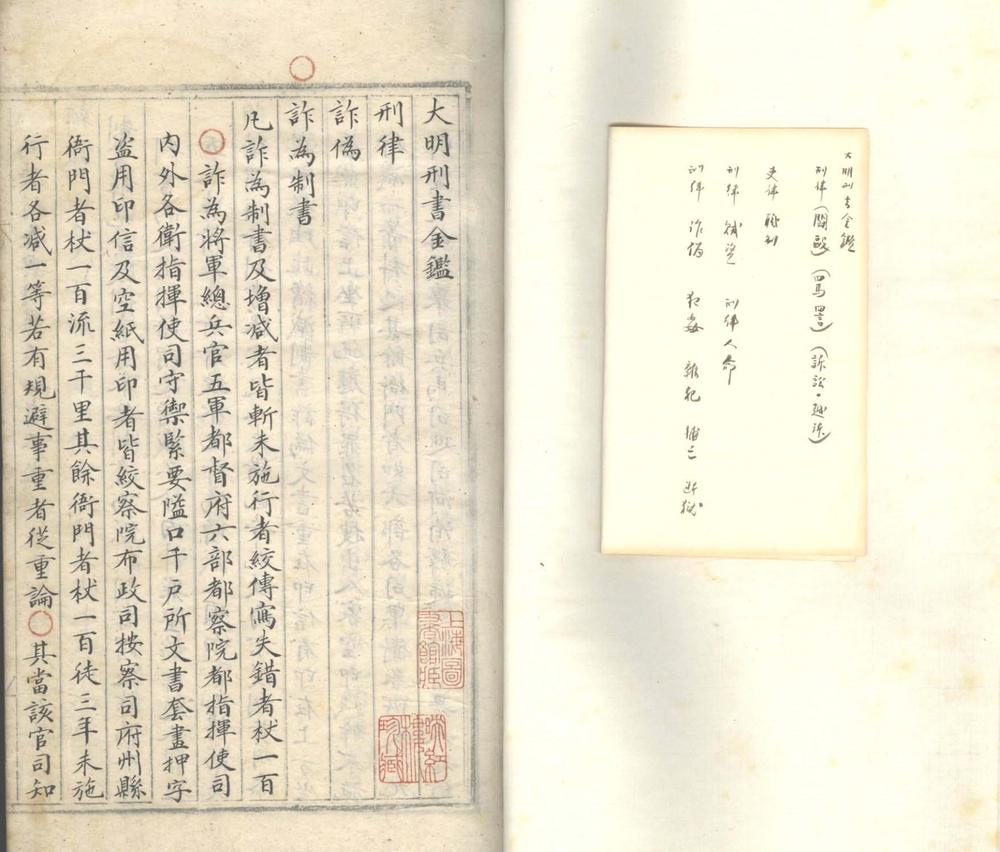 大明刑書金鑑
刑律(鬬毆)(罵詈)(訴訟・越訴)
吏律 職制
刑律 賊盜 刑律 人命
刑律 詐偽 犯姦 雜犯 捕亡 斷獄
大明刑書金鑑
刑律
詐偽
詐為制書
凡詐為制書及增减者皆斬未施行者絞傳寫失錯者杖一百
○詐為將軍總兵官五軍都督府六部都察院都指揮使司
內外各衛指揮使司守禦緊要隘口千戶所文書套畫押字
盗用印信及空紙用印者皆絞察院布政司按察司府州縣
衙門者杖一百流三千里其餘衙門者杖一百徒三年未施
行者各减一等若有規避事重者從重論○其當該官司知
上海圖
書館藏